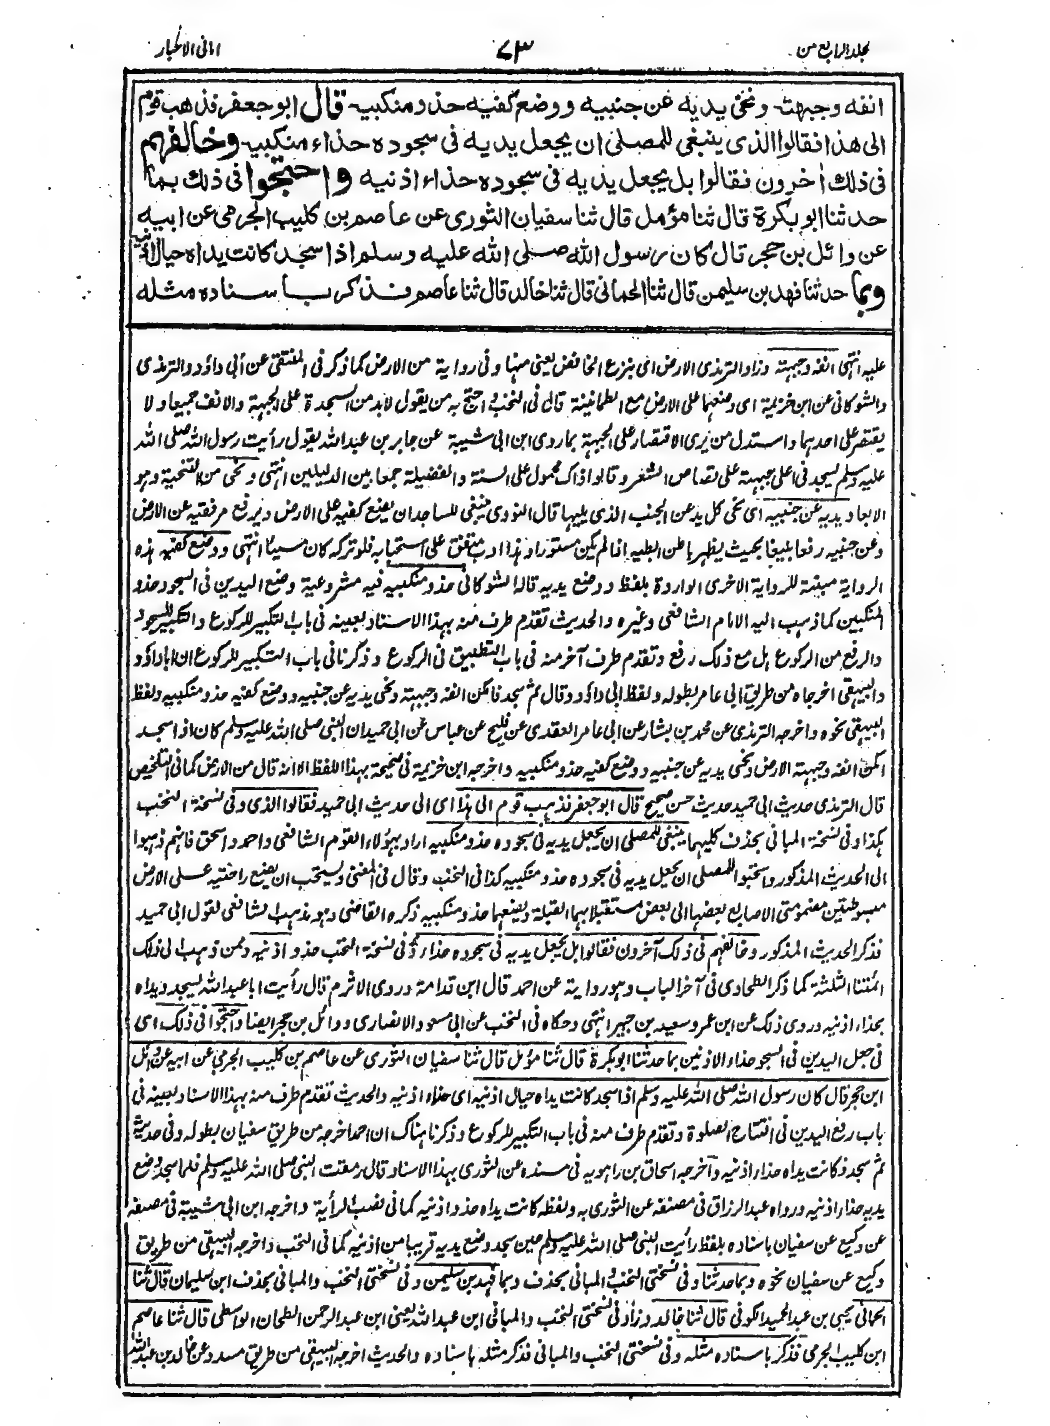 مجلد الرابع من
٧٣
امانی الاحبار
انفه وجبهته ونحى يديه عن جنبيه ووضع كفيه حذو منكبيه قال ابو جعفر فذهب قوم
الى هذا فقالوا الذى ينبغى للمصلى ان يجعل يديه فى سجوده حذاء منكبيه وخالفهم
فى ذلك اخرون فقالوا بل يجعل يديه فى سجوده حذاء اذنيه واحتجوا فى ذلك بما
حدثنا ابو بكرة قال ثنا مؤمل قال ثنا سفيان الثورى عن عاصم بن كليب الجرمى عن ابيه
عن وائل بن حجر قال كان رسول الله صلى الله عليه وسلم اذا سجد كانت يداه حيال اذنيه
وبما حدثنا فهد بن سليمن قال ثنا الحمانى قال ثنا خالد قال ثنا عاصم فذكر باسناده مثله
عليه انتهى انفه وجبهته وزاد الترمذى الارض اى بنزع الخافض يعنى منها وفى رواية من الارض كما ذكر فى المنتقى عن ابى داؤد والترمذى
والشوكانى عن ابن خزيمة اى وضعهما على الارض مع الطمانينة قال فى النخب واحتج به من يقول لابد من السجدة على الجبهة والانف جميعا ولا
يقتصر على احدهما واستدل من يرى الاقتصار على الجبهة بما روى ابن ابى شيبة عن جابر بن عبد الله يقول رأيت رسول الله صلى الله
عليه وسلم يسجد فى اعلى جبهته على قصاص الشعر وقالوا ذاك محمول على السنة والفضيلة جمعا بين الدليلين انتهى ونحى من التنحية وهو
الابعاد يديه عن جنبيه اى نحى كل يد عن الجنب الذى يليها قال النووى ينبغى للساجد ان يضع كفيه على الارض ويرفع مرفقيه عن الارض
وعن جنبيه رفعا بليغا بحيث يظهر باطن ابطيه اذا لم يكن مستورا وهذا ادب متفق على استحبابه فلو تركه كان مسيئا انتهى ووضع كفيه هذه
الرواية مبينة للرواية الاخرى الواردة بلفظ ووضع يديه قاله الشوكانى حذو منكبيه فيه مشروعية وضع اليدين فى السجود حذو
المنكبين كما ذهب اليه الامام الشافعى وغيره والحديث تقدم طرف منه بهذا الاسناد بعينه فى باب التكبير للركوع والتكبير للسجود
والرفع من الركوع هل مع ذلك رفع وتقدم طرف آخر منه فى باب التطبيق فى الركوع وذكرنا فى باب التكبير للركوع ان ابا داؤد
والبيهقى اخرجاه من طريق ابى عامر بطوله ولفظ ابى داؤد وقال ثم سجد فامكن انفه وجبهته ونحى يديه عن جنبيه ووضع كفيه حذو منكبيه ولفظ
البيهقى نحوه واخرجه الترمذى عن محمد بن بشار عن ابى عامر العقدى عن فليح عن عباس عن ابى حميد ان النبى صلى الله عليه وسلم كان اذا سجد
امكن انفه وجبهته الارض ونحى يديه عن جنبيه ووضع كفيه حذو منكبيه واخرجه ابن خزيمة فى صحيحه بهذا اللفظ الا انه قال من الارض كما فى التلخيص
قال الترمذى حديث ابى حميد حديث حسن صحيح قال ابو جعفر فذهب قوم الى هذا اى الى حديث ابى حميد فقالوا الذى وفى نسخة النخب
هكذا وفى نسخة المبانى بحذف كليهما ينبغى للمصلى ان يجعل يديه فى سجوده حذو منكبيه اراد بهؤلاء القوم الشافعى واحمد واسحق فانهم ذهبوا
الى الحديث المذكور واستحبوا للمصلى ان يجعل يديه فى سجوده حذو منكبيه كذا فى النخب وقال فى المغنى ويستحب ان يضع راحتيه على الارض
مبسوطتين مضمومتى الاصابع بعضها الى بعض مستقبلا بهما القبلة ويضعهما حذو منكبيه ذكره القاضى وهو مذهب الشافعى لقول ابى حميد
فذكر الحديث المذكور وخالفهم فى ذلك آخرون فقالوا بل يجعل يديه فى سجوده حذاء وفى نسخة النخب حذو اذنيه وممن ذهب الى ذلك
ائمتنا الثلثة كما ذكر الطحاوى فى آخر الباب وهو رواية عن احمد قال ابن قدامة وروى الاثرم قال رأيت ابا عبد الله يسجد ويداه
بحذاء اذنيه وروى ذلك عن ابن عمر وسعيد بن جبير انتهى وحكاه فى النخب عن ابى مسعود الانصارى ووائل بن حجر ايضا واحتجوا فى ذلك اى
فى جعل اليدين فى السجود حذاء الاذنين بما حدثنا ابو بكرة قال ثنا مؤمل قال ثنا سفيان الثورى عن عاصم بن كليب الجرمى عن ابيه عن وائل
ابن حجر قال كان رسول الله صلى الله عليه وسلم اذا سجد كانت يداه حيال اذنيه اى حذاء اذنيه والحديث تقدم طرف منه بهذا الاسناد بعينه فى
باب رفع اليدين فى افتتاح الصلوة وتقدم طرف منه فى باب التكبير للركوع وذكرنا هناك ان احمد اخرجه من طريق سفيان بطوله وفى حديثه
ثم سجد فكانت يداه حذاء اذنيه وآخرجه اسحاق بن راهويه فى مسنده عن الثورى بهذا الاسناد قال رمقت النبى صلى الله عليه وسلم فلما سجد وضع
يديه حذاء اذنيه ورواه عبد الرزاق فى مصنفه عن الثورى به ولفظه كانت يداه حذو اذنيه كما فى نصب الرأية واخرجه ابن ابى شيبة فى مصنفه
عن وكيع عن سفيان باسناده بلفظ رأيت النبى صلى الله عليه وسلم حين سجد وضع يديه قريبا من اذنيه كما فى النخب واخرجه البيهقى من طريق
وكيع عن سفيان نحوه وبما حدثنا وفى نسختى النخب والمبانى بحذف وبما فهد بن سليمن وفى نسختى النخب والمبانى بحذف ابن سليمان قال ثنا
الحمانى يحيى بن عبد الحميد الكوفى قال ثنا خالد وزاد فى نسختى النخب والمبانى ابن عبد الله يعنى ابن عبد الرحمن الطحان الواسطى قال ثنا عاصم
ابن كليب الجرمى فذكر باسناده مثله وفى نسختى النخب والمبانى فذكر مثله باسناده والحديث اخرجه البيهقى من طريق مسدد عن خالد بن عبد الله